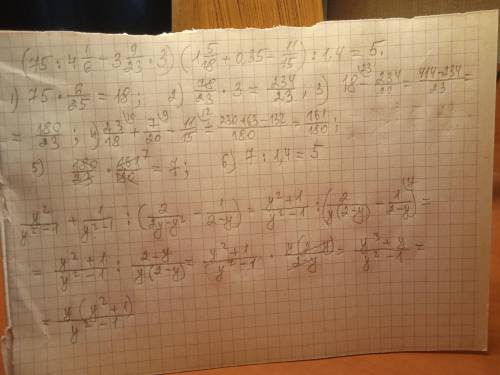 (75 : 4 1/6 − 3 9/23 · 3) (1 5/18 + 0,35 − 11/15) : 1,4 = 5.
1) 75 · 6/25 = 18; 2) 78/23 · 3 = 234/23; 3) 18^(23 − 234/23 = 414−234/23 =
= 180/23; 4) 23/18^(10 + 7/20^(9 − 11/15^(12 = 230+63−132/180 = 161/180;
5) 180/23 · 161^7/180 = 7; 6) 7 : 1,4 = 5
y²/y²−1 + 1/y²−1 : (2/2y−y² − 1/2−y) = y²+1/y²−1 : (2/y(2−y) − 1/2−y^(y) =
= y²+1/y²−1 : 2−y/y(2−y) = y²+1/y²−1 · y(2−y)/2−y = y³+y/y²−1 =
= y(y²+1)/y²−1